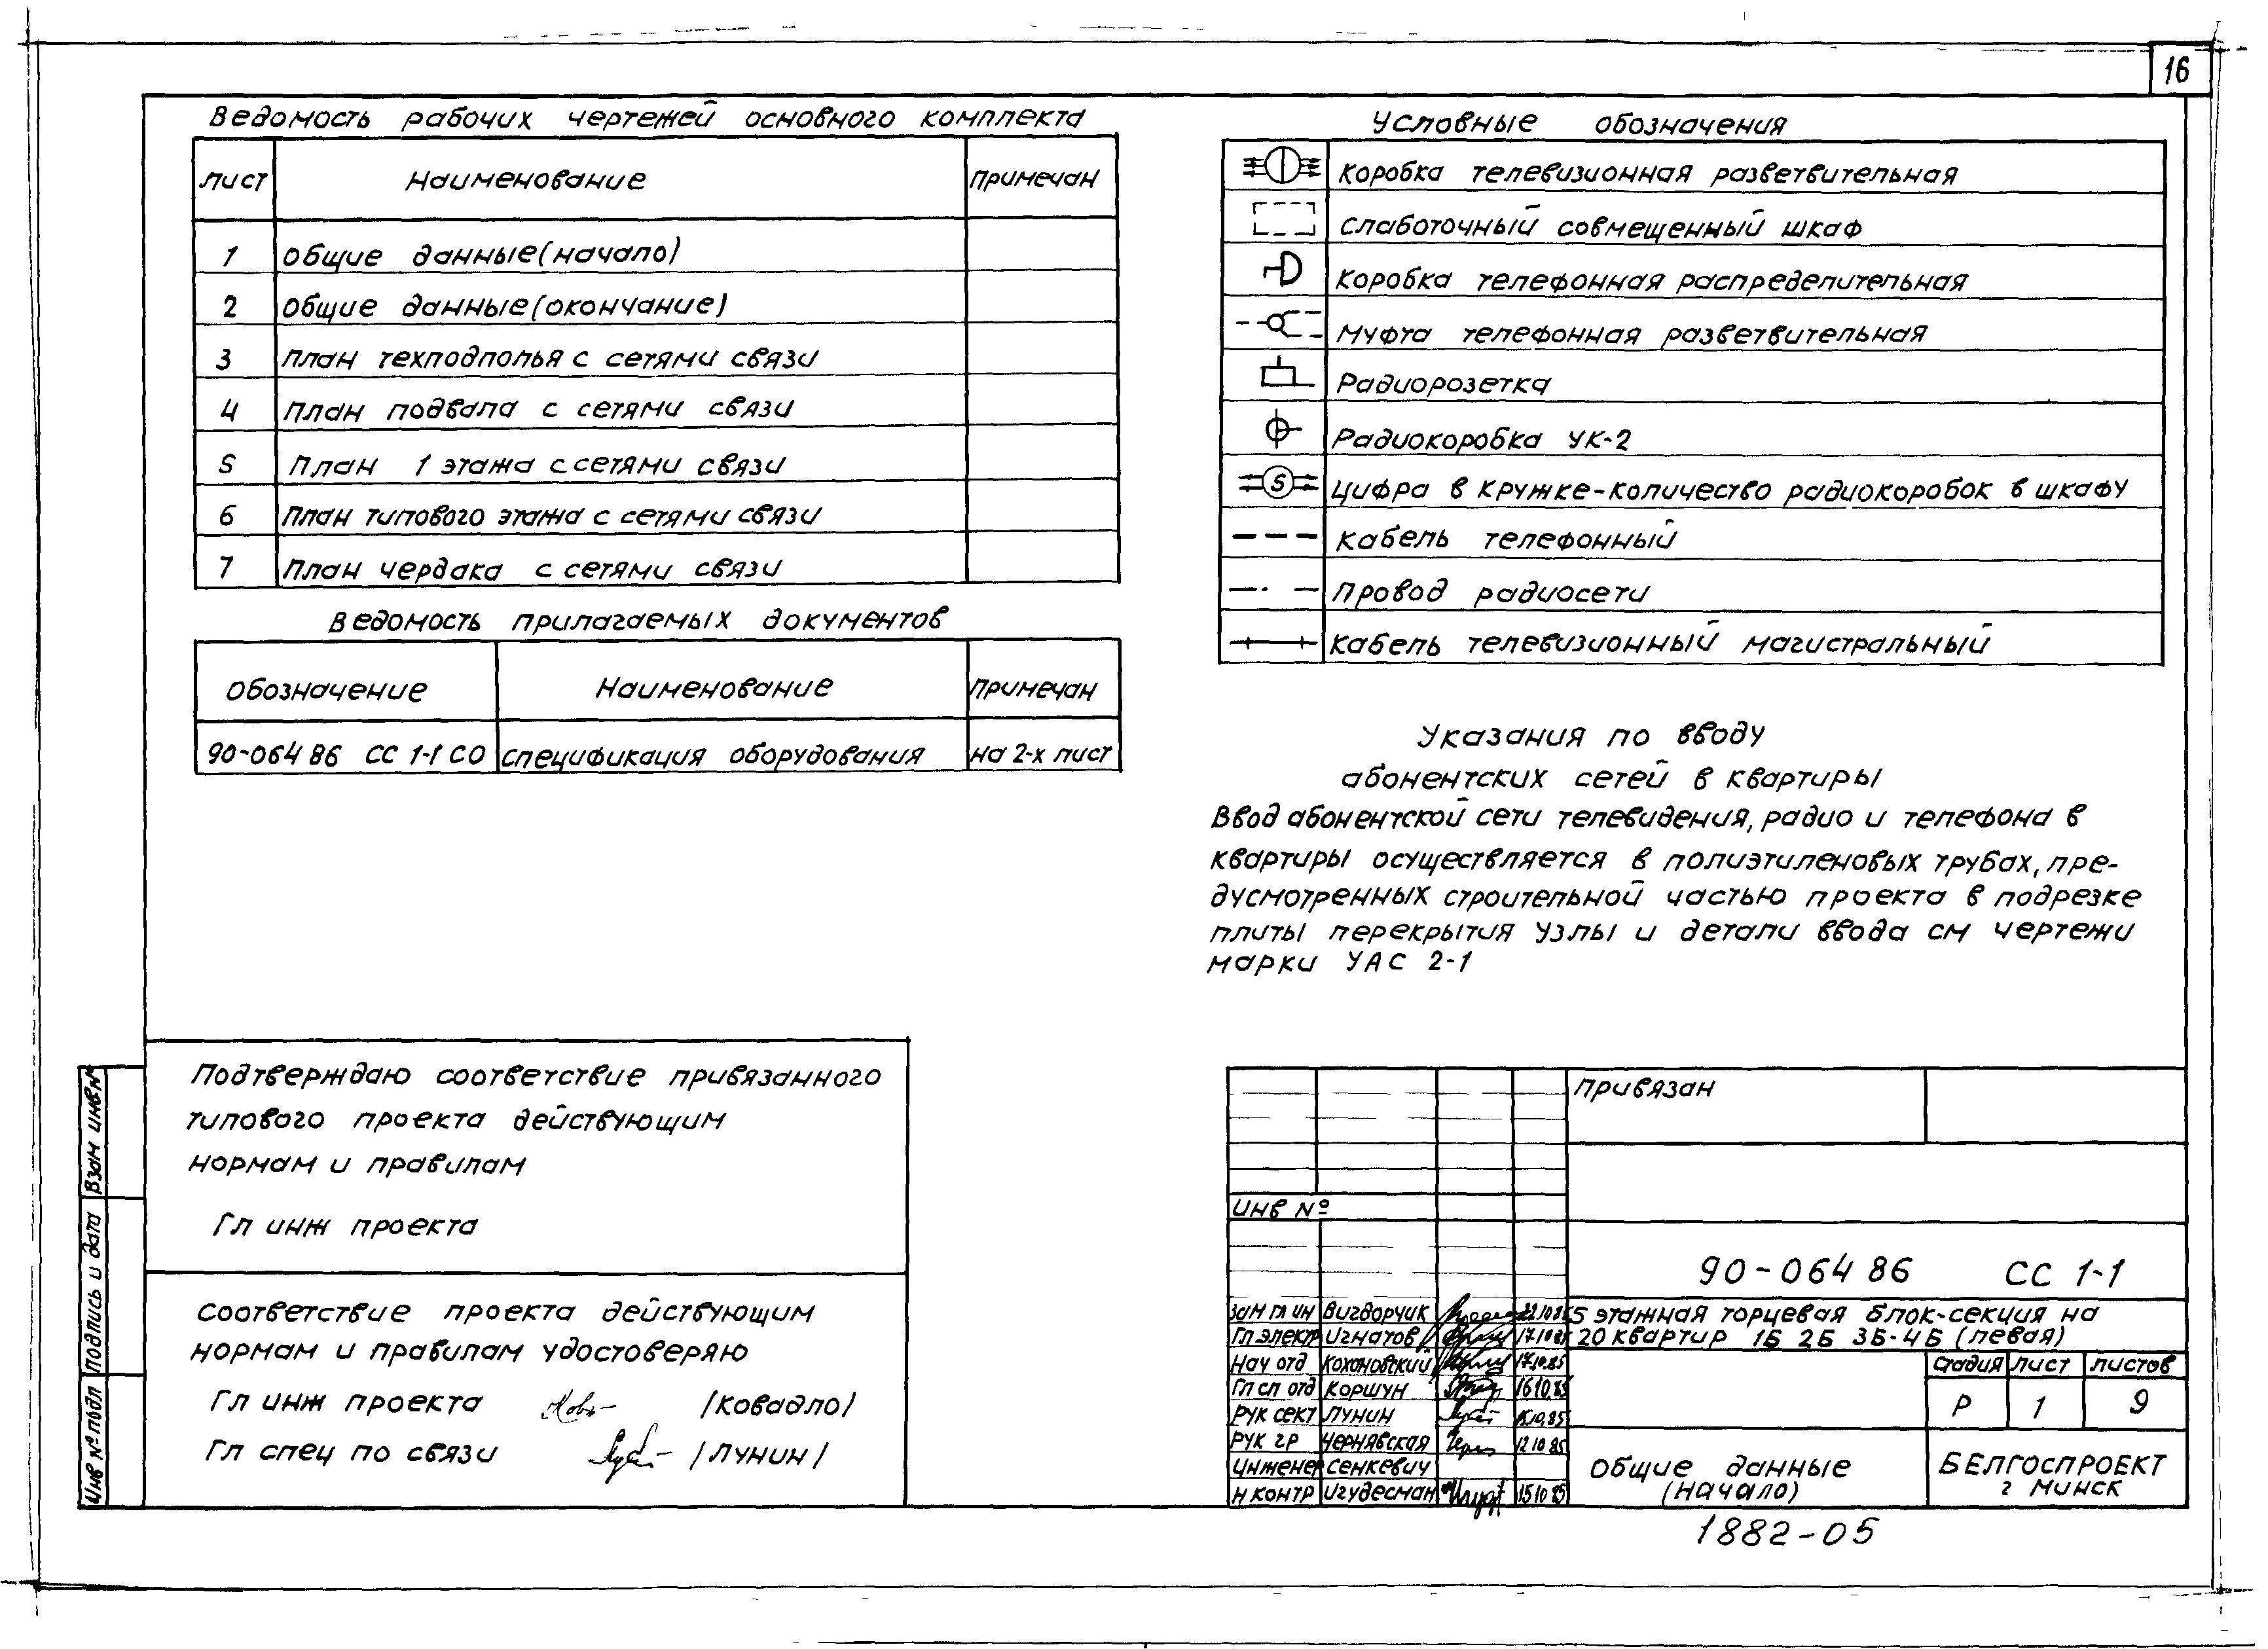 16
Ведомость рабочих чертежей основного комплекта
лист Наименование примечан
1 Общие данные (начало)
2 Общие данные (окончание)
3 План техподполья с сетями связи
4 План подвала с сетями связи
5 План 1 этажа с сетями связи
6 План типового этажа с сетями связи
7 План чердака с сетями связи
Ведомость прилагаемых документов
Обозначение Наименование примечан
90-064 86 СС 1-1 СО спецификация оборудования на 2-х лист
Условные обозначения
Коробка телевизионная разветвительная
Слаботочный совмещенный шкаф
Коробка телефонная распределительная
Муфта телефонная разветвительная
Радиорозетка
Радиокоробка УК-2
5 Цифра в кружке-количество радиокоробок в шкафу
Кабель телефонный
Провод радиосети
Кабель телевизионный магистральный
Указания по вводу
абонентских сетей в квартиры
Ввод абонентской сети телевидения, радио и телефона в
квартиры осуществляется в полиэтиленовых трубах, пре-
дусмотренных строительной частью проекта в подрезке
плиты перекрытия Узлы и детали ввода см чертежи
марки УАС 2-1
Подтверждаю соответствие привязанного
типового проекта действующим
нормам и правилам
Гл инж проекта
Соответствие проекта действующим
нормам и правилам удостоверяю
Гл инж проекта /Ковадло/
Гл спец по связи /Лунин/
Взам инв №
Подпись и дата
Инв № подл
Привязан
Инв №
90-064 86 СС 1-1
Зам гл ин Вигдорчик 22.10.85
Гл электр Игнатов 17.10.85
Нач отд Кохановский 17.10.85
Гл сп отд Коршун 16.10.85
Рук сект Лунин 15.10.85
Рук гр Чернявская 12 10 85
Инженер Сенкевич
Н контр Игудесман 15 10 85
5 этажная торцевая блок-секция на
20 квартир 1Б 2Б 3Б-4Б (левая)
стадия лист листов
Р 1 9
Общие данные
(начало)
БЕЛГОСПРОЕКТ
г Минск
1882-05